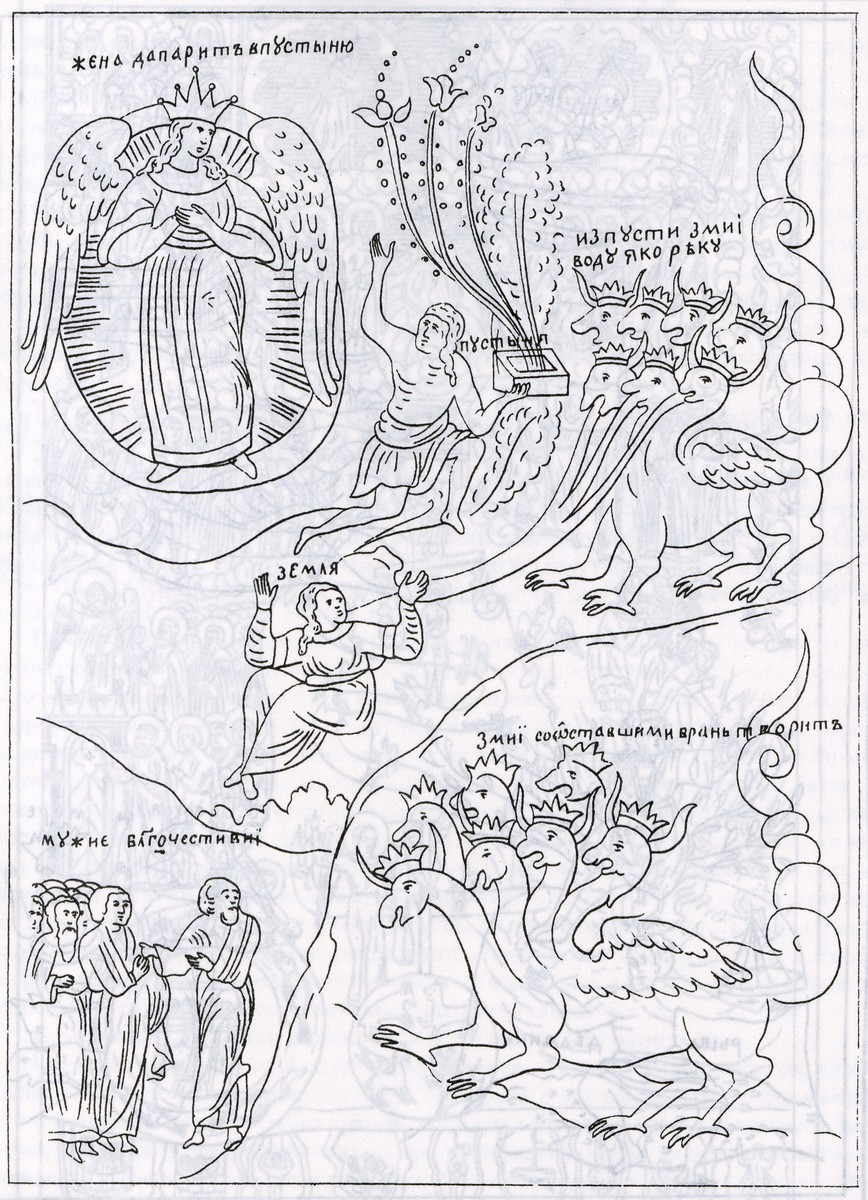 жена дапаритъ впустыню
изпусти змиї
воду яко рѣку
пустыня
земля
змиї соѡставшими врань творитъ
мужие блгочестивиї